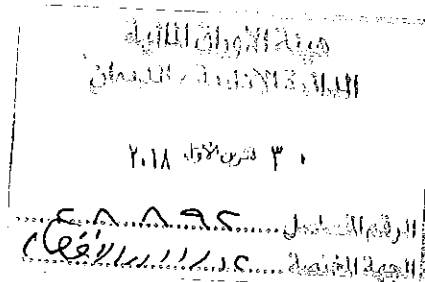 هيئة الأوراق المالية
الدائرة الإدارية / الديوان
٣٠ تشرين الأول ٢٠١٨
الرقم المتسلسل
الجهة المختصة الإفصاح